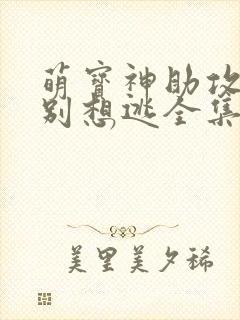 萌寶神助攻
別想逃全集
美里美夕稀